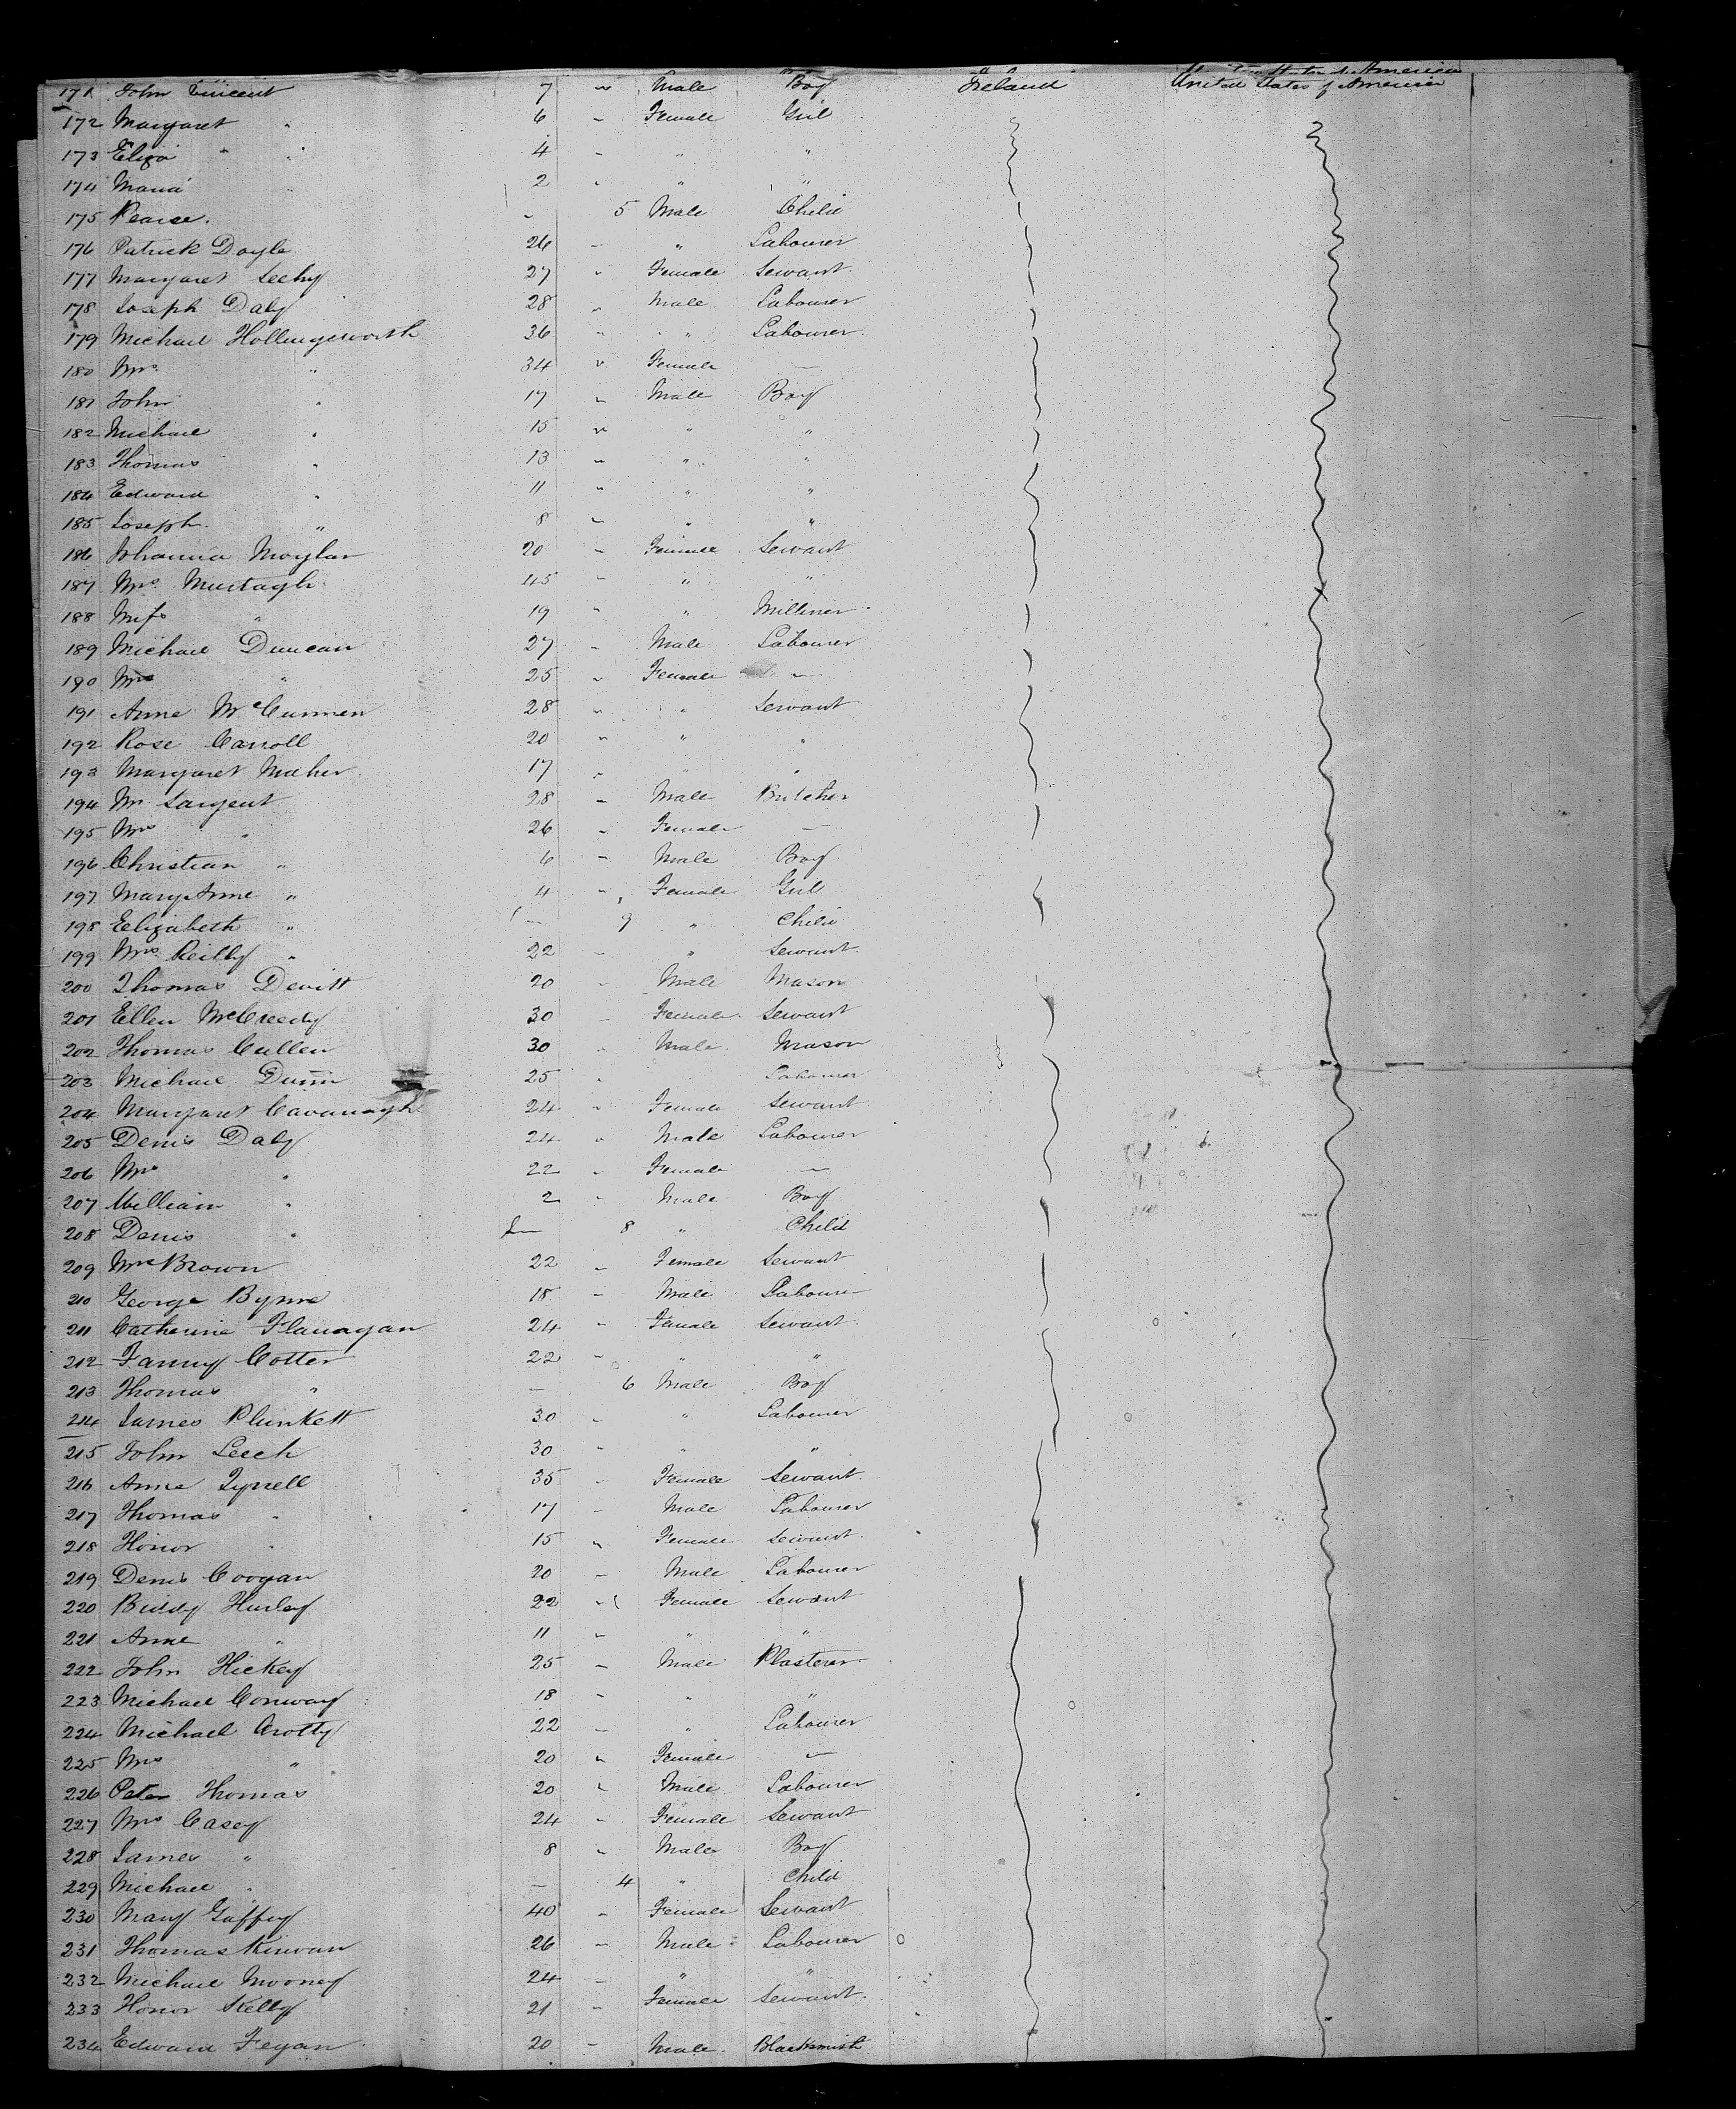 United States of America
171 John Vincent 7 " Male Boy Ireland United States of America
172 Margaret " 6 " Female Girl
173 Eliza " " 4 " " "
174 Maria " 2 " " "
175 Pearce. - 5 Male Child
176 Patrick Doyle 26 " " Labourer
177 Margaret Leehy 27 " Female Servant.
178 Joseph Daly 28 " Male Labourer
179 Michael Hollingsworth 36 " " Labourer.
180 Mrs. " 34 " Female —
181 John " 17 " Male Boy
182 Michael " 15 " " "
183 Thomas " 13 " " "
184 Edward " 11 " " "
185 Joseph. " 8 " " "
186 Johanna Moylan 20 " Female Servant
187 Mrs. Murtagh 45 " " "
188 Miss " 19 " " Milliner.
189 Michael Duncan 27 " Male Labourer
190 Mrs " 25 " Female —
191 Anne McCunnen 28 " " Servant
192 Rose Carroll 20 " " "
193 Margaret Maher 17 " " "
194 Mr Sargent 28 " Male Butcher
195 Mrs " 26 " Female —
196 Christian " 6 " Male Boy
197 Mary Anne " 4 " Female Girl
198 Elizabeth " — 9 " Child
199 Mrs Reilly " 22 " " Servant.
200 Thomas Devitt 20 " Male Mason
201 Ellen McCreedy 30 " Female Servant
202 Thomas Cullen 30 " Male Mason
203 Michael Dunn 25 " Labourer
204 Margaret Cavanagh 24 " Female Servant
205 Denis Daly 24 " Male Labourer
206 Mrs " 22 " Female —
207 William " 2 " Male Boy
208 Denis " — 8 " Child
209 Mrs Brown 22 " Female Servant
210 George Byrne 18 " Male Labourer
211 Catherine Flanagan 24 " Female Servant.
212 Fanny Cotter 22 " " "
213 Thomas " — 6 Male Boy
214 James Plunkett 30 " " Labourer
215 John Leech 30 " " "
216 Anne Tyrrell 35 " Female Servant.
217 Thomas " 17 " Male Labourer
218 Honor " 15 " Female Servant.
219 Denis Coogan 20 " Male Labourer
220 Biddy Hurley 22 " Female Servant
221 Anne " 11 " " "
222 John Hickey 25 " Male Plasterer
223 Michael Conway 18 " " "
224 Michael Crotty 22 " " Labourer
225 Mrs " 20 " Female —
226 Peter Thomas 20 " Male Labourer
227 Mrs Casey 24 " Female Servant
228 James " 8 " Male Boy
229 Michael " — 4 " Child
230 Mary Gaffey 40 " Female Servant
231 Thomas Kirwan 26 " Male Labourer
232 Michael Mooney 24 " " "
233 Honor Kelly 21 " Female Servant.
234 Edward Fegan 20 " Male. Blacksmith